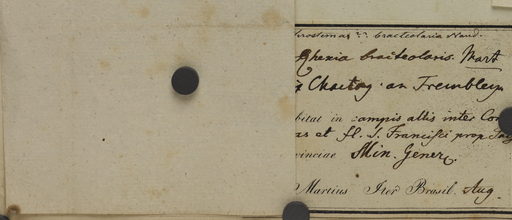 bracteolaria Naud.
Rhexia bracteolaris. Mart
Chaetog. an Trembleya
bitat in campis altis inter Con
as et fl. S. Francisci prop
vinciae Min. Gener.
Martius Iter Brasil. Aug.